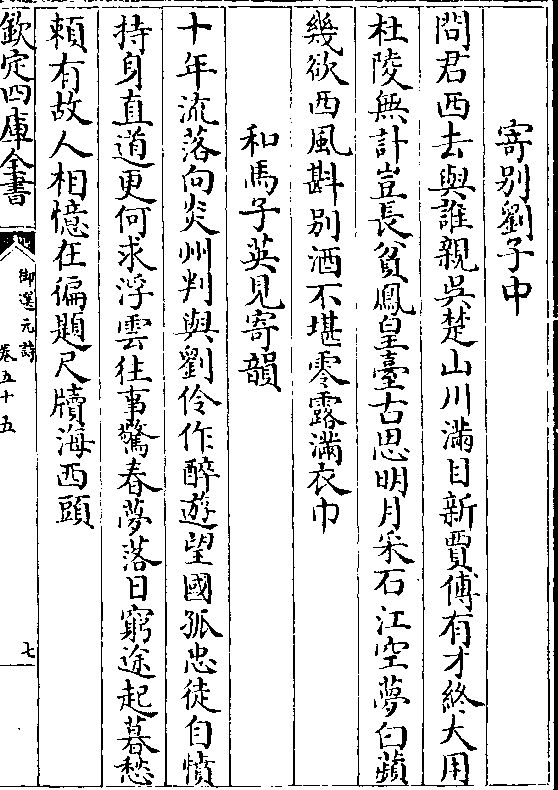 寄别劉子中
問君西去與誰親吳楚山川滿目新賈傅有才終大用
杜陵無計豈長貧鳳皇臺古思明月采石江空夢白蘋
幾欲西風斟别酒不堪零露滿衣巾
和馬子英見寄韻
十年流落向炎州判與劉伶作醉遊望國孤忠徒自憤
持身直道更何求浮雲往事驚春夢落日窮途起暮愁
頼有故人相憶在徧題尺牘海西頭
欽定四庫全書
御選元詩
卷五十五
七